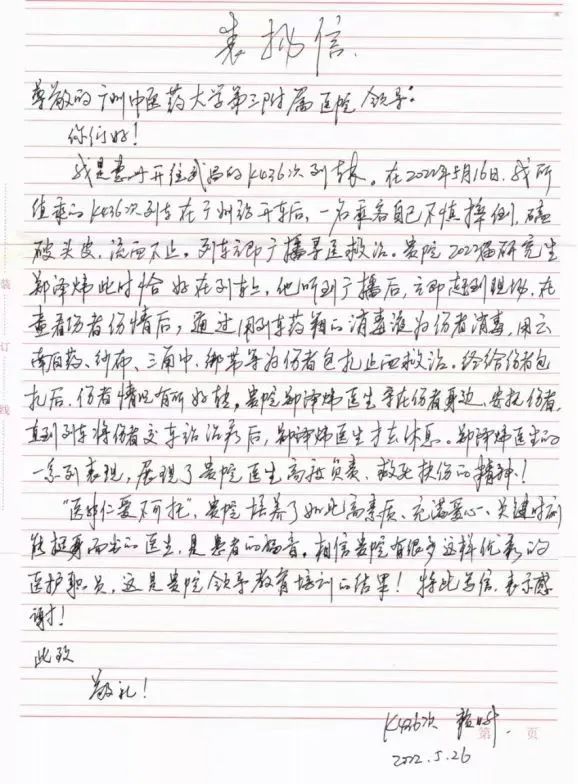 表扬信
尊敬的广州中医药大学第三附属医院领导：
你们好！
我是惠州开往武昌的K436次列车长。在2022年5月16日，我所
值乘的K436次列车在广州站开车后，一名乘客自己不慎摔倒，磕
破头皮，流血不止。列车立即广播寻医救治。贵院2022届研究生
郑泽炜此时恰好在列车上，他听到广播后，立即赶到现场，在
查看伤者伤情后，通过用列车药箱的消毒液为伤者消毒，用云
南白药、纱布、三角巾、绷带等为伤者包扎止血救治。经给伤者包
扎后，伤者情况有所好转。贵院郑泽炜医生守在伤者身边，安抚伤者，
直到列车将伤者交车站治疗后，郑泽炜医生才去休息。郑泽炜医生的
一系列表现，展现了贵院医生高度负责、救死扶伤的精神！
“医者仁爱不可托”，贵院培养了如此高素质、充满爱心、关键时刻
能挺身而出的医生，是患者的福音。相信贵院有很多这样优秀的
医护职员，这是贵院领导教育培训的结果！特此写信，表示感
谢！
此致
敬礼！
K436次
2022.5.26
第 页
装
订
线